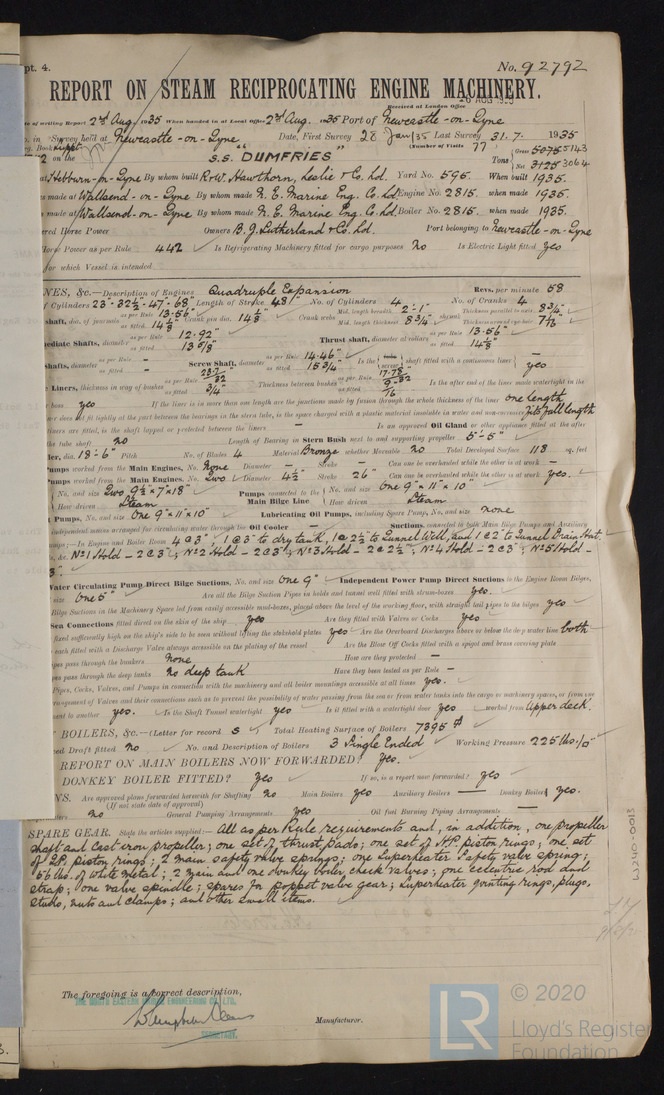 pt. 4.
No. 92792
REPORT ON STEAM RECIPROCATING ENGINE MACHINERY.
Received at London Office 26 AUG 1935
of writing Report 2nd Aug. 1935 When handed in at Local Office 2nd Aug. 1935 Port of Newcastle-on-Tyne
o. in Survey held at Newcastle-on-Tyne Date, First Survey 28 Jan/35 Last Survey 31.7. 1935
g. Book (Number of Visits 77)
2 on the S.S. "DUMFRIES" Tons Gross 5075 5143 Net 3125 3064
at Hebburn-on-Tyne By whom built R & W. Hawthorn, Leslie & Co. Ld. Yard No. 595. When built 1935.
s made at Wallsend-on-Tyne By whom made N. E. Marine Eng. Co. Ld. Engine No. 2815. when made 1935.
made at Wallsend-on-Tyne By whom made N. E. Marine Eng. Co. Ld. Boiler No. 2815. when made 1935.
ered Horse Power Owners B. J. Sutherland & Co. Ld. Port belonging to Newcastle-on-Tyne
Horse Power as per Rule 442 Is Refrigerating Machinery fitted for cargo purposes No Is Electric Light fitted Yes
for which Vessel is intended
NES, &c.—Description of Engines Quadruple Expansion Revs. per minute 58
f Cylinders 23"-32½"-47"-68" Length of Stroke 48" No. of Cylinders 4 No. of Cranks 4
shaft, dia. of journals as per Rule 13.56" as fitted 14⅛" Crank pin dia. 14⅛" Crank webs Mid. length breadth 2'-1" Mid. length thickness 8¾" shrunk Thickness parallel to axis 8¾" Thickness around eye-hole 7
ediate Shafts, diameter as per Rule 12.92" as fitted 13⅝" Thrust shaft, diameter at collars as per Rule 13.56" as fitted 14⅛"
shafts, diameter as per Rule — as fitted — Screw Shaft, diameter as per Rule 14.46" as fitted 15¾" Is the screw shaft fitted with a continuous liner yes
Liners, thickness in way of bushes as per Rule as fitted ¾" Thickness between bushes as per Rule as fitted Is the after end of the liner made watertight in the
boss yes If the liner is in more than one length are the junctions made by fusion through the whole thickness of the liner one length
er does not fit tightly at the part between the bearings in the stern tube, is the space charged with a plastic material insoluble in water and non-corrosive fits full length
liners are fitted, is the shaft lapped or protected between the liners — Is an approved Oil Gland or other appliance fitted at the after
the tube shaft no Length of Bearing in Stern Bush next to and supporting propeller 5'-5"
ller, dia. 18'-6" Pitch No. of Blades 4 Material Bronze whether Moveable No Total Developed Surface 113 sq. feet
umps worked from the Main Engines, No. None Diameter — Stroke — Can one be overhauled while the other is at work —
umps worked from the Main Engines, No. Two Diameter 4½" Stroke 26" Can one be overhauled while the other is at work yes.
No. and size Two 9½" x 7" x 18" Pumps connected to the Main Bilge Line No. and size One 9" x 11" x 10"
How driven Steam How driven Steam
Pumps, No. and size One 9" x 11" x 10" Lubricating Oil Pumps, including Spare Pump, No. and size none
independent means arranged for circulating water through the Oil Cooler — Suctions, connected to both Main Bilge Pumps and Auxiliary
umps;—In Engine and Boiler Room 4 @ 3", 1 @ 3" to dry tank, 1 @ 2½" to Tunnel Well, and 1 @ 2" to Tunnel Drain Hat.
s, &c. No 1 Hold - 2 @ 3"; No 2 Hold - 2 @ 3"; No 3 Hold - 2 @ 2½"; No 4 Hold - 2 @ 3"; No 5 Hold -
3".
Water Circulating Pump Direct Bilge Suctions, No. and size One 9" Independent Power Pump Direct Suctions to the Engine Room Bilges,
size One 5" Are all the Bilge Suction Pipes in holds and tunnel well fitted with strum-boxes yes.
Bilge Suctions in the Machinery Space led from easily accessible mud-boxes, placed above the level of the working floor, with straight tail pipes to the bilges yes
Sea Connections fitted direct on the skin of the ship yes Are they fitted with Valves or Cocks yes
fixed sufficiently high on the ship's side to be seen without lifting the stokehold plates yes Are the Overboard Discharges above or below the deep water line both
each fitted with a Discharge Valve always accessible on the plating of the vessel Are the Blow Off Cocks fitted with a spigot and brass covering plate
pes pass through the bunkers None How are they protected —
pes pass through the deep tanks No deep tank Have they been tested as per Rule —
Pipes, Cocks, Valves, and Pumps in connection with the machinery and all boiler mountings accessible at all times yes.
rangement of Valves and their connections such as to prevent the possibility of water passing from the sea or from water tanks into the cargo or machinery spaces, or from one
ment to another yes. Is the Shaft Tunnel watertight yes Is it fitted with a watertight door yes worked from Upper deck.
BOILERS, &c.—(Letter for record S) Total Heating Surface of Boilers 7395
ed Draft fitted No No. and Description of Boilers 3 Single Ended Working Pressure 225 lbs./□"
REPORT ON MAIN BOILERS NOW FORWARDED? Yes.
DONKEY BOILER FITTED? Yes If so, is a report now forwarded? yes
NS. Are approved plans forwarded herewith for Shafting No Main Boilers Yes Auxiliary Boilers — Donkey Boilers Yes.
(If not state date of approval)
ers No General Pumping Arrangements Yes Oil fuel Burning Piping Arrangements —
SPARE GEAR. State the articles supplied:— All as per Rule requirements and, in addition, one propeller
shaft and cast iron propeller; one set of thrust pads; one set of H.P. piston rings; one set
of I.P. piston rings; 2 main safety valve springs; one Superheater Safety valve spring;
56 lbs. of white metal; 2 main and one donkey boiler check valves; one eccentric rod and
strap; one valve spindle; spares for poppet valve gear; Superheater jointing rings, plugs,
studs, nuts and clamps; and other small items.
W240-0013
The foregoing is a correct description,
THE NORTH EASTERN MARINE ENGINEERING CO. LTD.
SECRETARY.
Manufacturer.
LR
© 2020
Lloyd's Register
Foundation